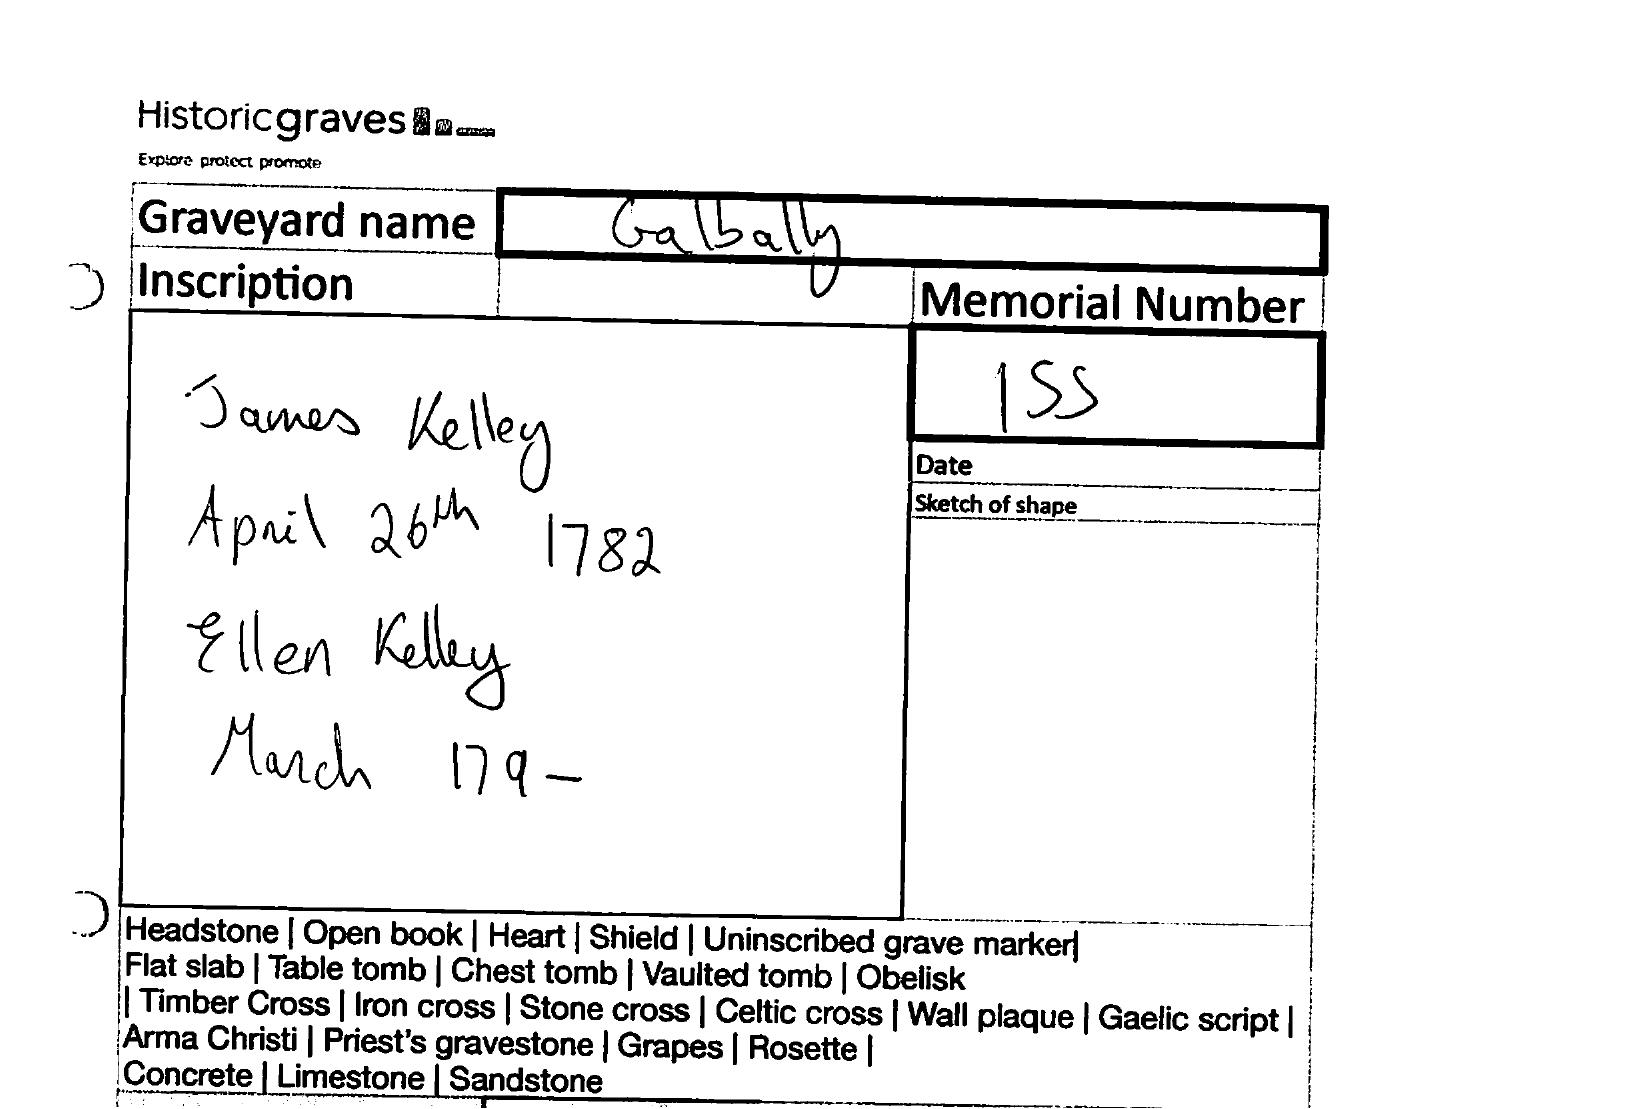 Historicgraves
Explore protect promote
Graveyard name Galbally
Inscription
Memorial Number
155
James Kelley
April 26th 1782
Ellen Kelley
March 179-
Date
Sketch of shape
Headstone | Open book | Heart | Shield | Uninscribed grave marker|
Flat slab | Table tomb | Chest tomb | Vaulted tomb | Obelisk
| Timber Cross | Iron cross | Stone cross | Celtic cross | Wall plaque | Gaelic script |
Arma Christi | Priest's gravestone | Grapes | Rosette |
Concrete | Limestone | Sandstone